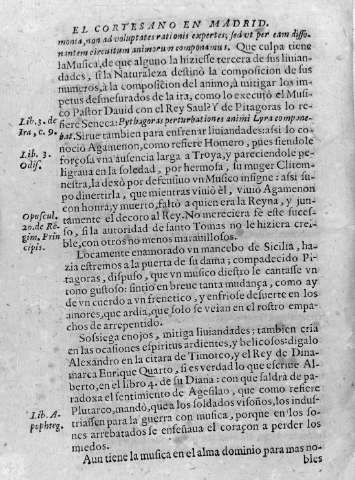 EL CORTESANO EN MADRID.
monia, non ad voluptates rationis expertes, sed vt per eam disso-
nantem circuitum animorum componamus. Que culpa tiene
la Musica, de que alguno la hiziesse tercera de sus liuian-
dades, si la Naturaleza destinò la composicion de sus
numeros, à la composicion del animo, à mitigar los im-
petus desmesurados de la ira, como lo executò el Musi-
co Pastor Dauid con el Rey Saul? Y de Pitagoras lo re-
Lib. 3. de
Ira, c. 9.
fiere Seneca: Pythagoras perturbationes animi Lyra compone-
bat. Sirue tambien para enfrenar liuiandades: assi lo co-
nociò Agamenon, como refiere Homero, pues siendole
Lib. 3.
Odiss.
forçosa vna ausencia larga a Troya, y pareciendole pe-
ligraua en la soledad, por hermosa, su muger Clitem-
nestra, la dexò por defensiuo vn Musico insigne: assi su-
po diuertirla, que mientras viuiò èl, viuiò Agamenon
con honra, y muerto, faltò a quien era la Reyna, y jun-
Opuscul.
20. de Re-
gim. Prin-
cipis.
tamente el decoro al Rey. No mereciera fè este suces-
so, si la autoridad de santo Tomas no le hiziera crei-
ble, con otros no menos marauillosos.
Locamente enamorado vn mancebo de Sicilia, ha-
zia estremos a la puerta de su dama; compadecido Pi-
tagoras, dispuso, que vn musico diestro le cantasse vn
tono gustoso: sintiò en breue tanta mudança, como ay
de vn cuerdo a vn frenetico, y enfriose desuerte en los
amores, que ardia, que solo se veian en el rostro empa-
chos de arrepentido.
Sossiega enojos, mitiga liuiandades; tambien cria
en las ocasiones espiritus ardientes, y belicosos: digalo
Alexandro en la citara de Timoteo, y el Rey de Dina-
marca Enrique Quarto, si es verdad lo que escriue Al-
berto, en el Libro 4. de su Diana: con que saldrà de pa-
radoxa el sentimiento de Agesilao, que como refiere
Lib. A-
pophteg.
Plutarco, mandò, que a los soldados visoños, los indus-
triassen para la guerra con musica, porque en los so-
nes arrebatados se enseñaua el coraçon a perder los
miedos.
Aun tiene la musica en el alma dominio para mas no-
bles